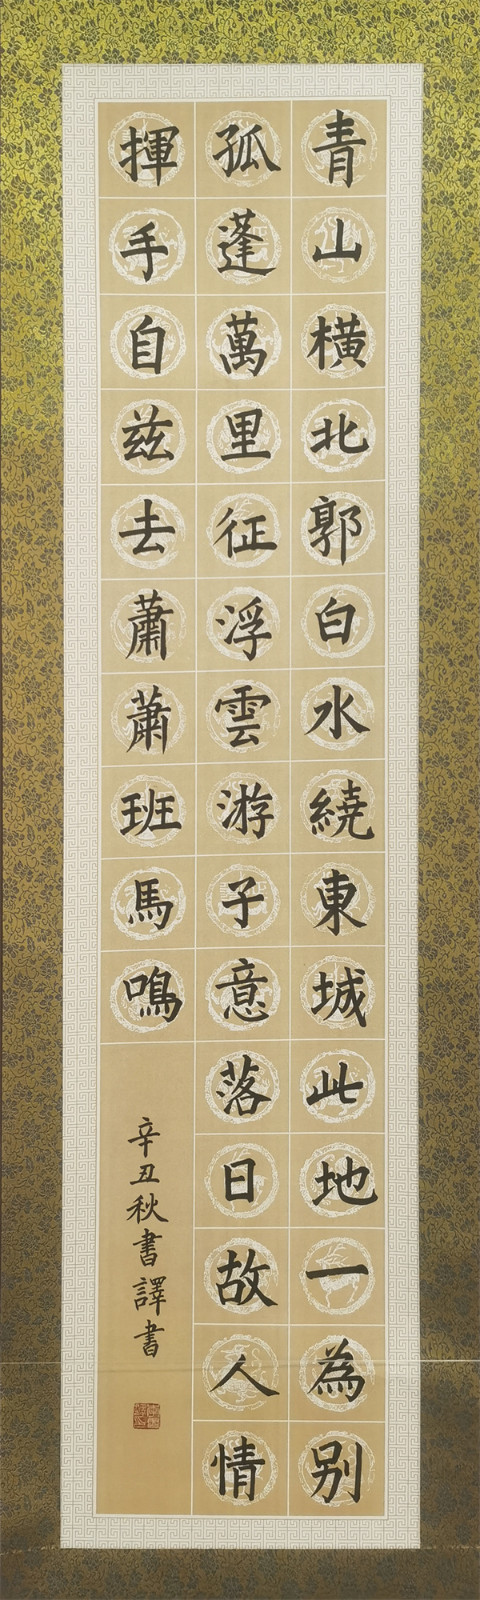 青山橫北郭白水繞東城此地一為別
孤蓬萬里征浮雲游子意落日故人情
揮手自茲去蕭蕭班馬鳴
辛丑秋書譯書